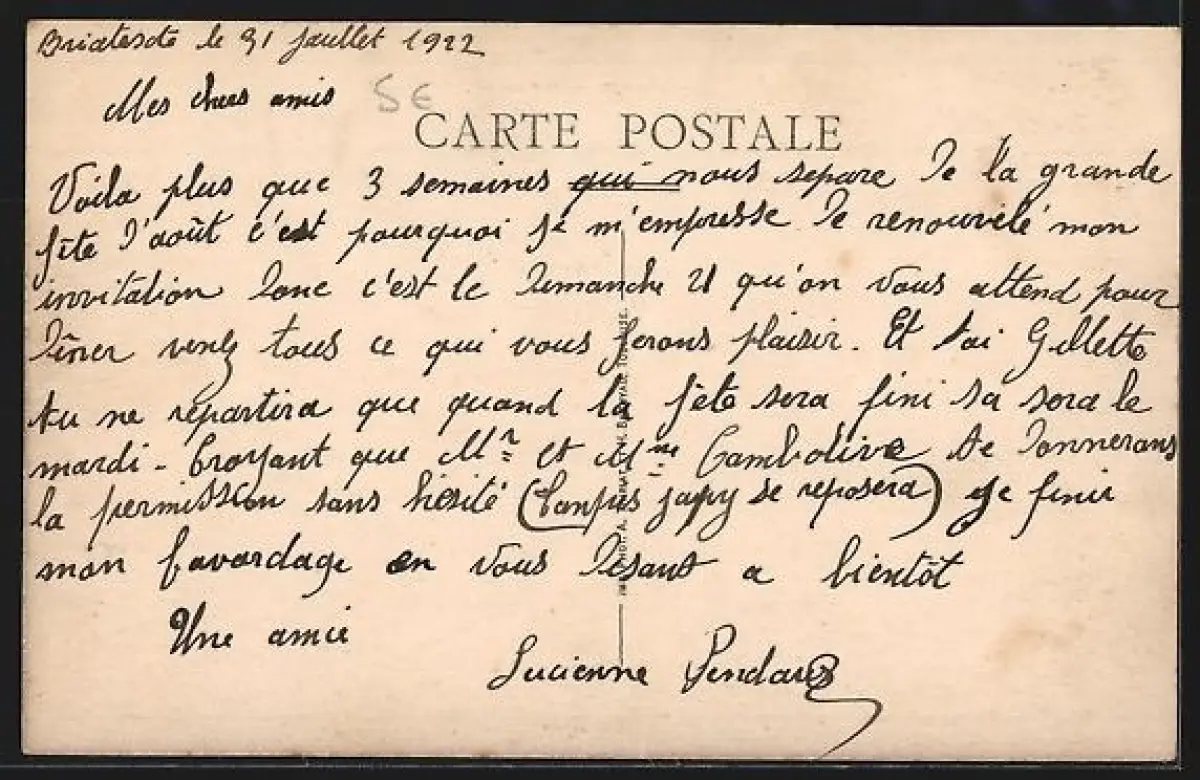 Briatexte le 31 juillet 1922
Mes chers amis
5 €
CARTE POSTALE
Voila plus que 3 semaines qui nous separe de la grande
fête d'août c'est pourquoi je m'empresse de renouvelé mon
invitation donc c'est le dimanche 21 qu'on vous attend pour
dîner venez tous ce qui vous ferons plaisir. Et toi Gillette
tu ne repartira que quand la fête sera fini sa sera le
mardi - Croyant que Mr et Mme Cambolive te donnerons
la permission sans hésité (tanpis japy se reposera) Je finir
mon bavardage en vous disant a bientôt
Une amie
Lucienne